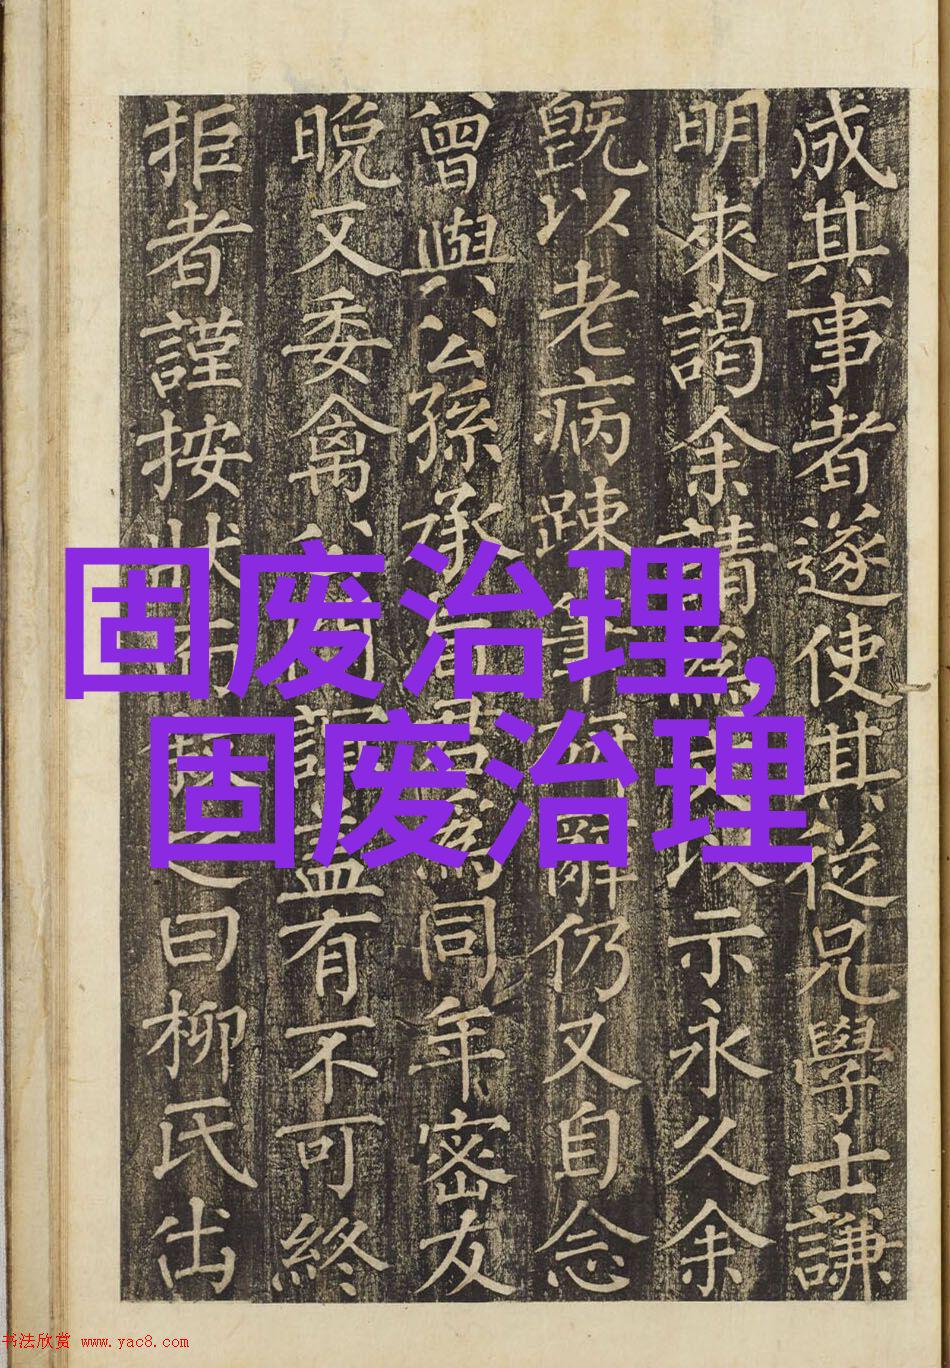 成其事者遂使其從兄學士謙
明來謁余請為以示永久余
既以老病踈筆辭仍又自念
曾與公孫承旨為同年密友
晚又委禽公門誼蓋有不可終
拒者謹按狀之曰柳氏出
固废治理,
固废治理
书法欣赏 www.yac8.com